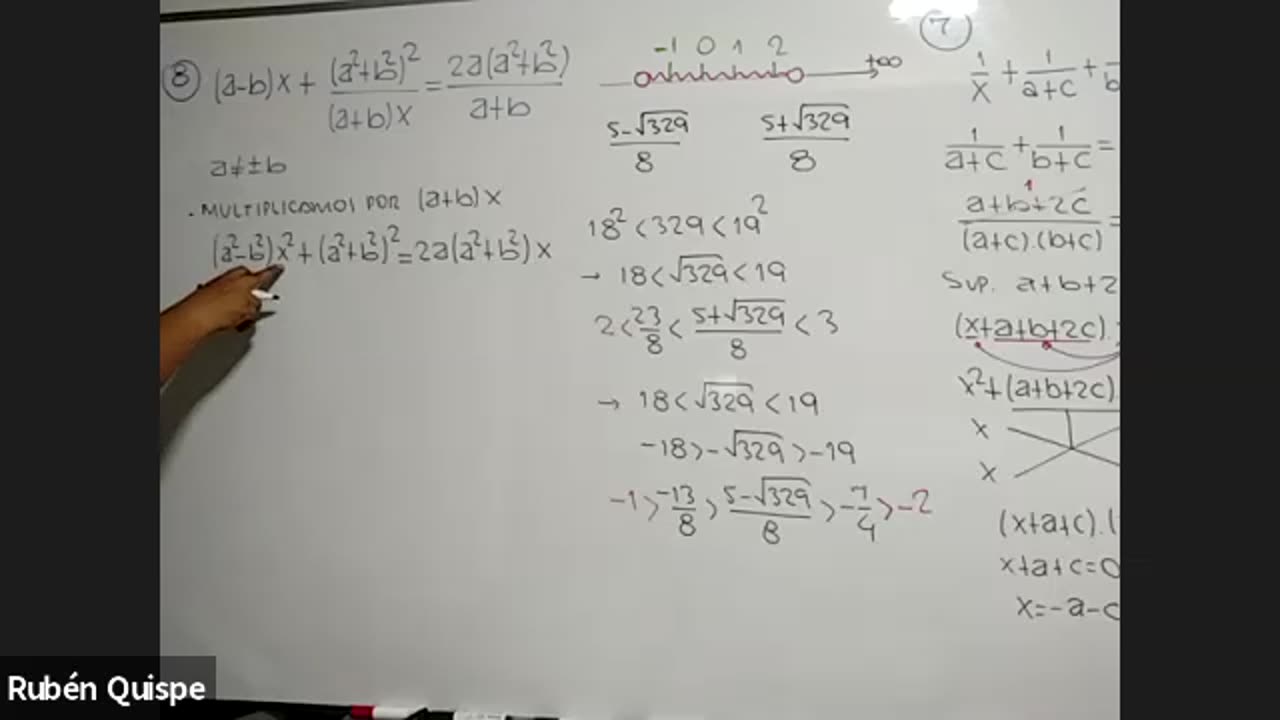 8 (a-b)x + (a²+b²)²/(a+b)x = 2a(a²+b²)/a+b
a≠±b
. MULTIPLICAMOS POR (a+b)x
(a²-b²)x²+(a²+b²)²=2a(a²+b²)x
-1 0 1 2 +∞
5-√329/8 5+√329/8
18²<329<19²
→ 18<√329<19
2<23/8<5+√329/8<3
→ 18<√329<19
-18>-√329>-19
-1>-13/8>5-√329/8>-7/4>-2
7
1/x + 1/a+c +
1/a+c + 1/b+c =
a+b+2c/(a+c).(b+c) =
Sup. a+b+2
(x+a+b+2c).
x²+(a+b+2c)
x
x
(x+a+c).(
x+a+c=0
x=-a-c
Rubén Quispe